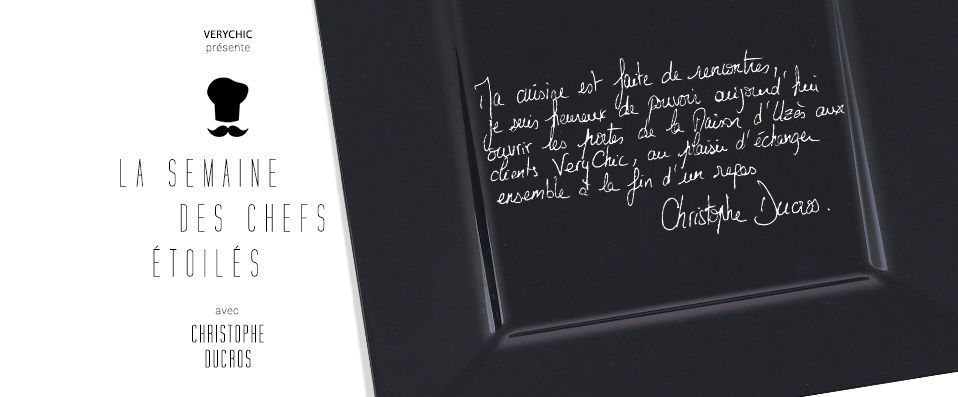 VERYCHIC
présente
LA SEMAINE
DES CHEFS
ÉTOILÉS
avec
CHRISTOPHE
DUCROS
Ma cuisine est faite de rencontres,
je suis heureux de pouvoir aujourd'hui
ouvrir les portes de la Maison d'Uzès aux
clients VeryChic, au plaisir d'échanger
ensemble à la fin d'un repas
Christophe Ducros.